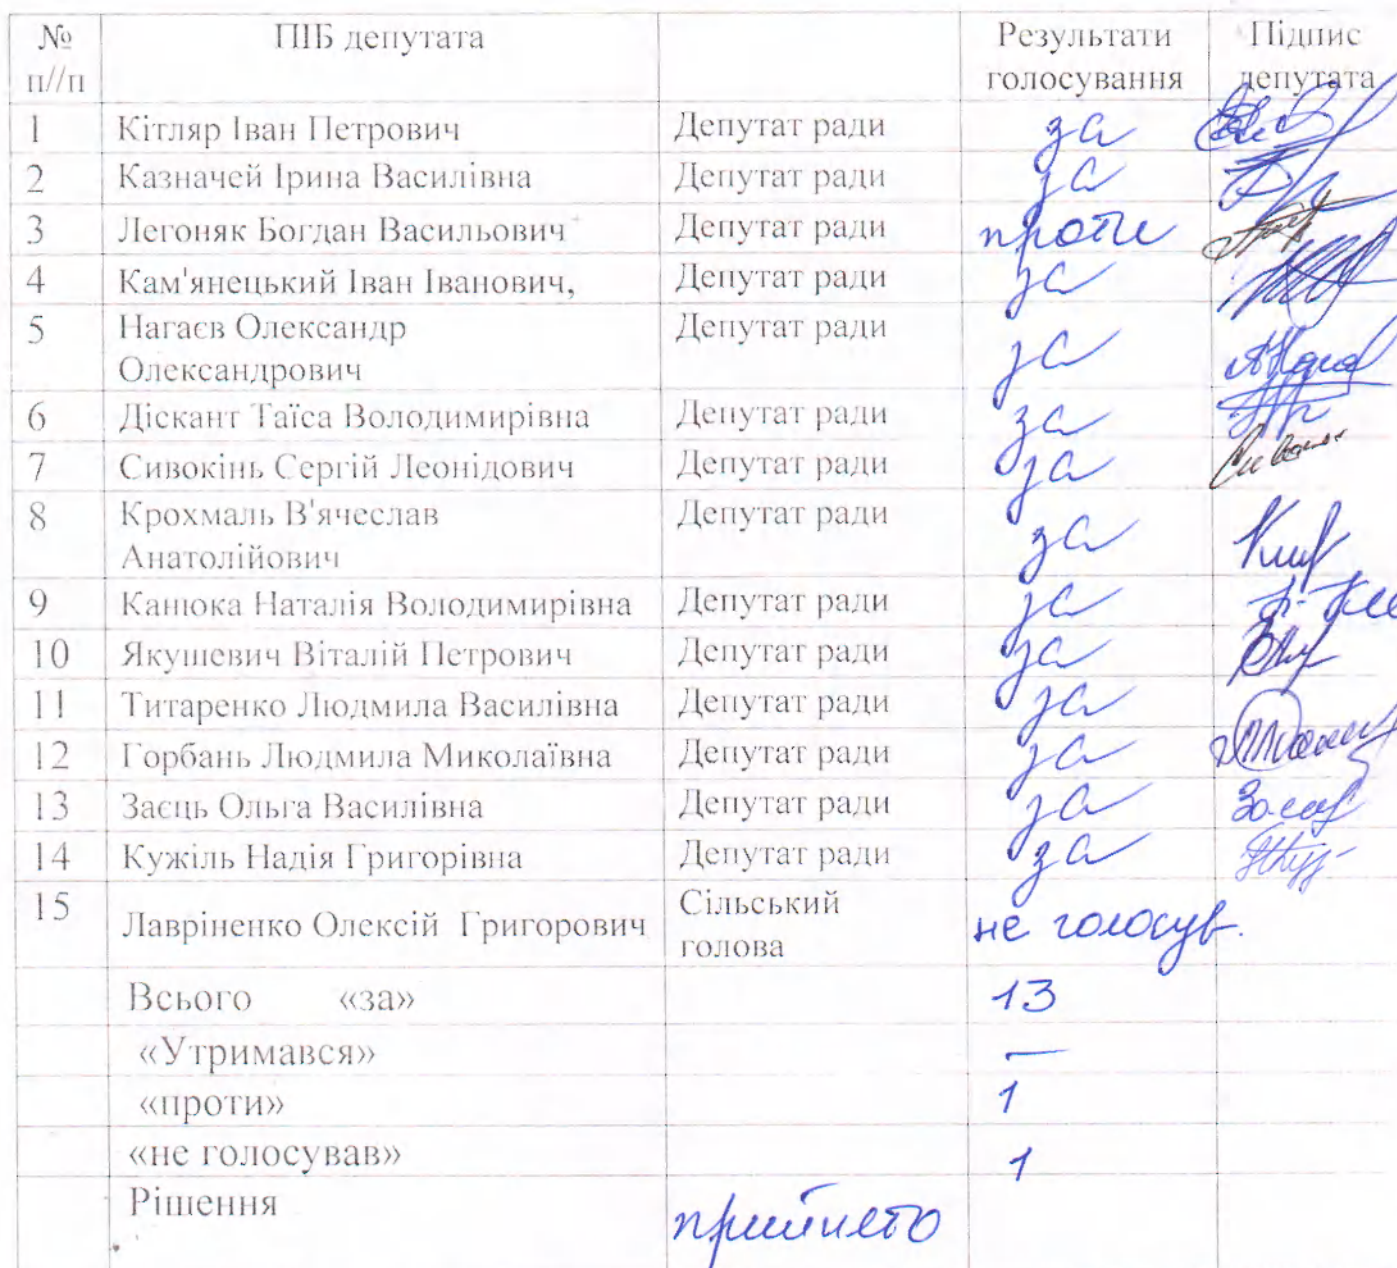 № ПІБ депутата Результати Підпис
п//п голосування депутата
1 Кітляр Іван Петрович Депутат ради за
2 Казначей Ірина Василівна Депутат ради за
3 Легоняк Богдан Васильович Депутат ради проти
4 Кам'янецький Іван Іванович, Депутат ради за
5 Нагаєв Олександр Депутат ради за
Олександрович
6 Діскант Таїса Володимирівна Депутат ради за
7 Сивокінь Сергій Леонідович Депутат ради за
8 Крохмаль В'ячеслав Депутат ради за
Анатолійович
9 Канюка Наталія Володимирівна Депутат ради за
10 Якушевич Віталій Петрович Депутат ради за
11 Титаренко Людмила Василівна Депутат ради за
12 Горбань Людмила Миколаївна Депутат ради за
13 Заєць Ольга Василівна Депутат ради за
14 Кужіль Надія Григорівна Депутат ради за
15 Лавріненко Олексій Григорович Сільський не голосув.
голова
Всього «за» 13
«Утримався» —
«проти» 1
«не голосував» 1
Рішення прийнято